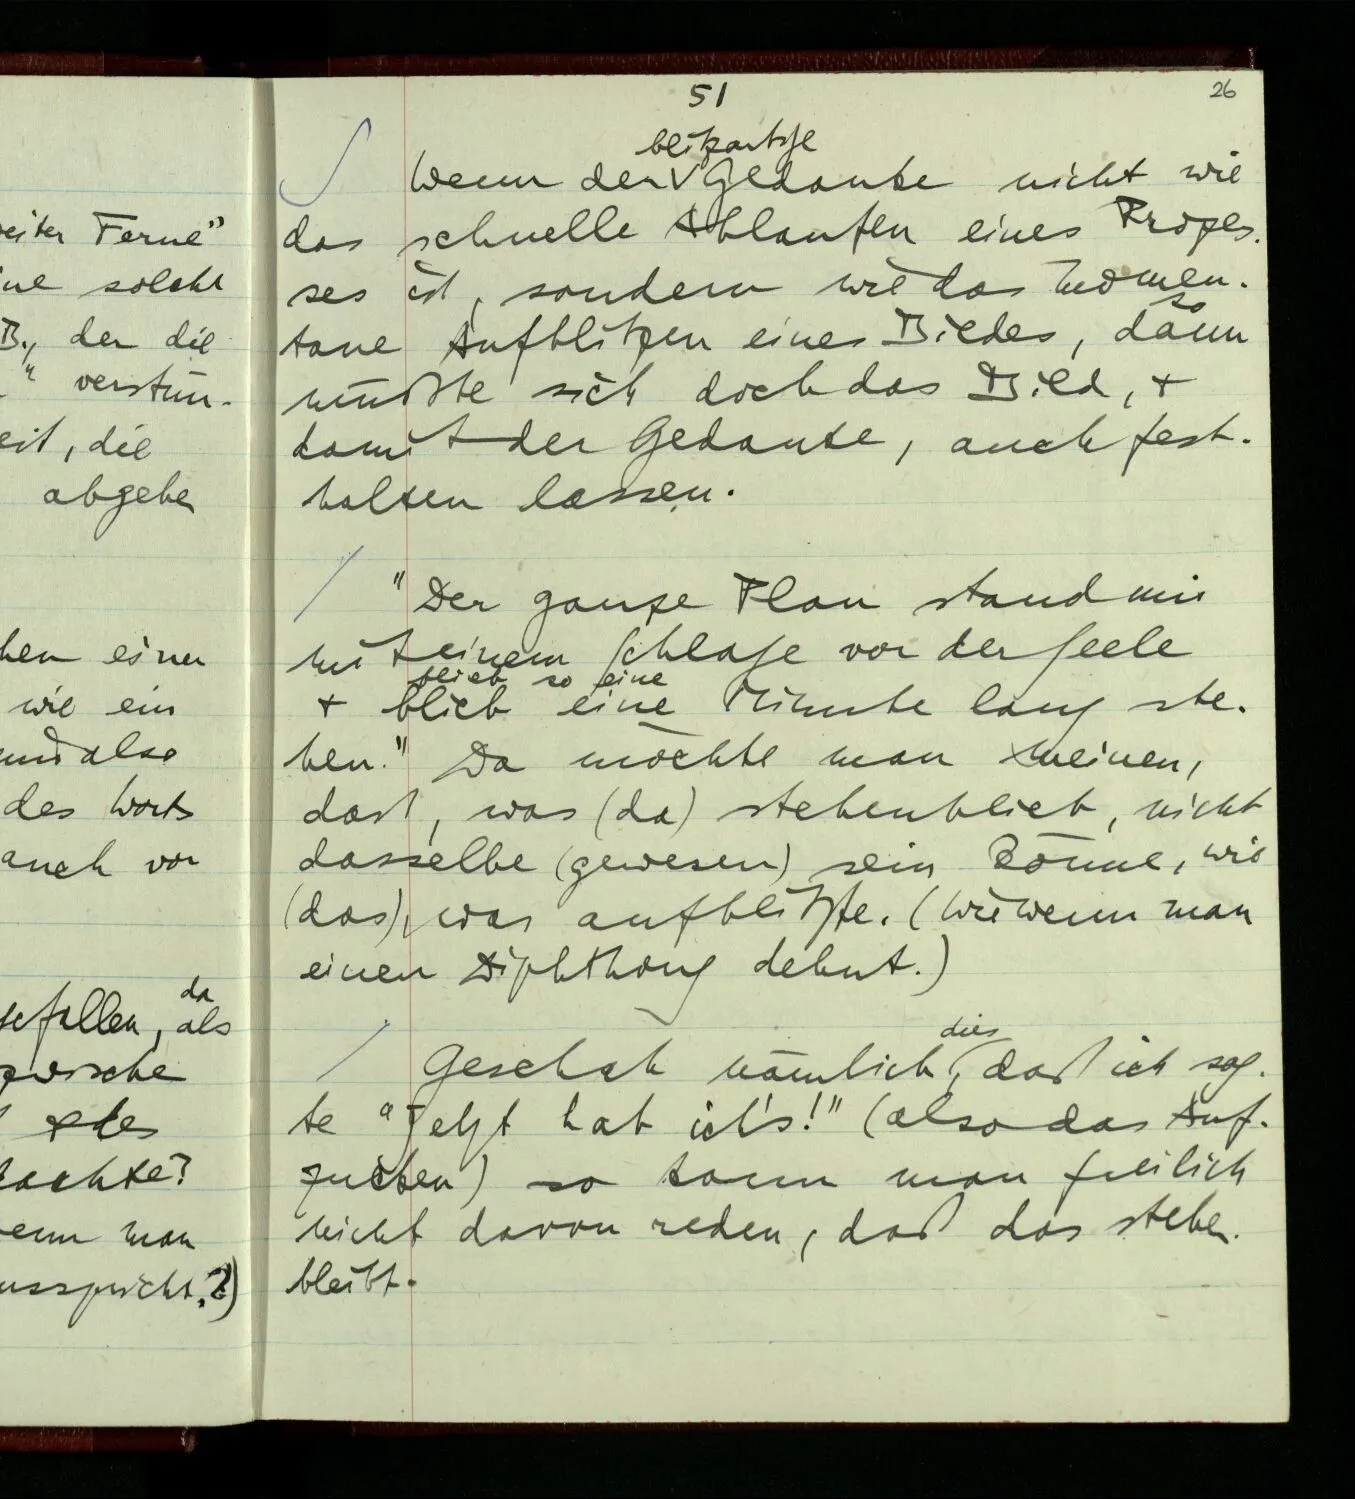 51
26
blitzartige
Wenn der Gedanke nicht wie
das schnelle Ablaufen eines Prozes-
ses ist, sondern wie das momen-
so
tane Aufblitzen eines Bildes, dann
müßte sich doch das Bild, +
damit der Gedanke, auch fest-
halten lassen.
"Der ganze Plan stand mir
mit einem Schlage vor der Seele
blieb so eine
+ blieb eine Minute lang ste-
hen." Da möchte man meinen,
daß, was (da) stehenblieb, nicht
dasselbe (gewesen) sein könne, wie
(das), was aufblitzte. (Wie wenn man
einen Diphthong dehnt.)
dies
Geschah nämlich, daß ich sag-
te "Jetzt hab ich's!" (also das Auf-
zucken) so kann man freilich
nicht davon reden, daß das stehen
bleibt.
eiter Ferne"
ine solche
B., der die
" verstüm-
eit, die
abgehe
hen einer
wie ein
und also
des Worts
auch vor
da
gefallen, als
zwische
dachte?
wenn man
ausspricht.?)